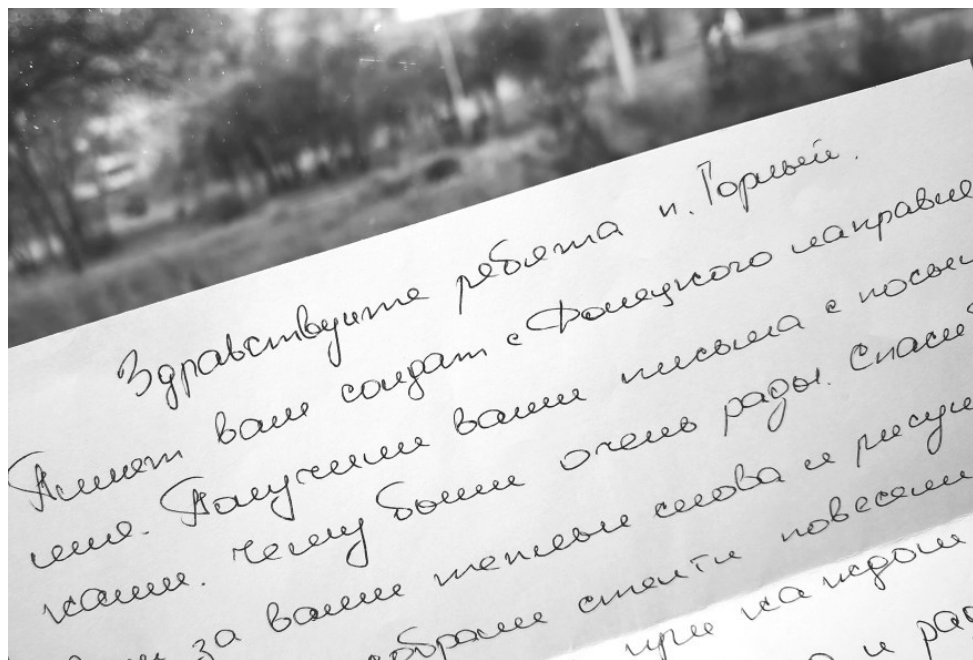 Здравствуйте ребята п. Горный.
Пишет вам солдат с Донецкого направле
ния. Получили ваши письма с посыл
ками. Чему были очень рады. Спаси
за ваши теплые слова и рисун
собрали стенги повесили
каждом
и рас